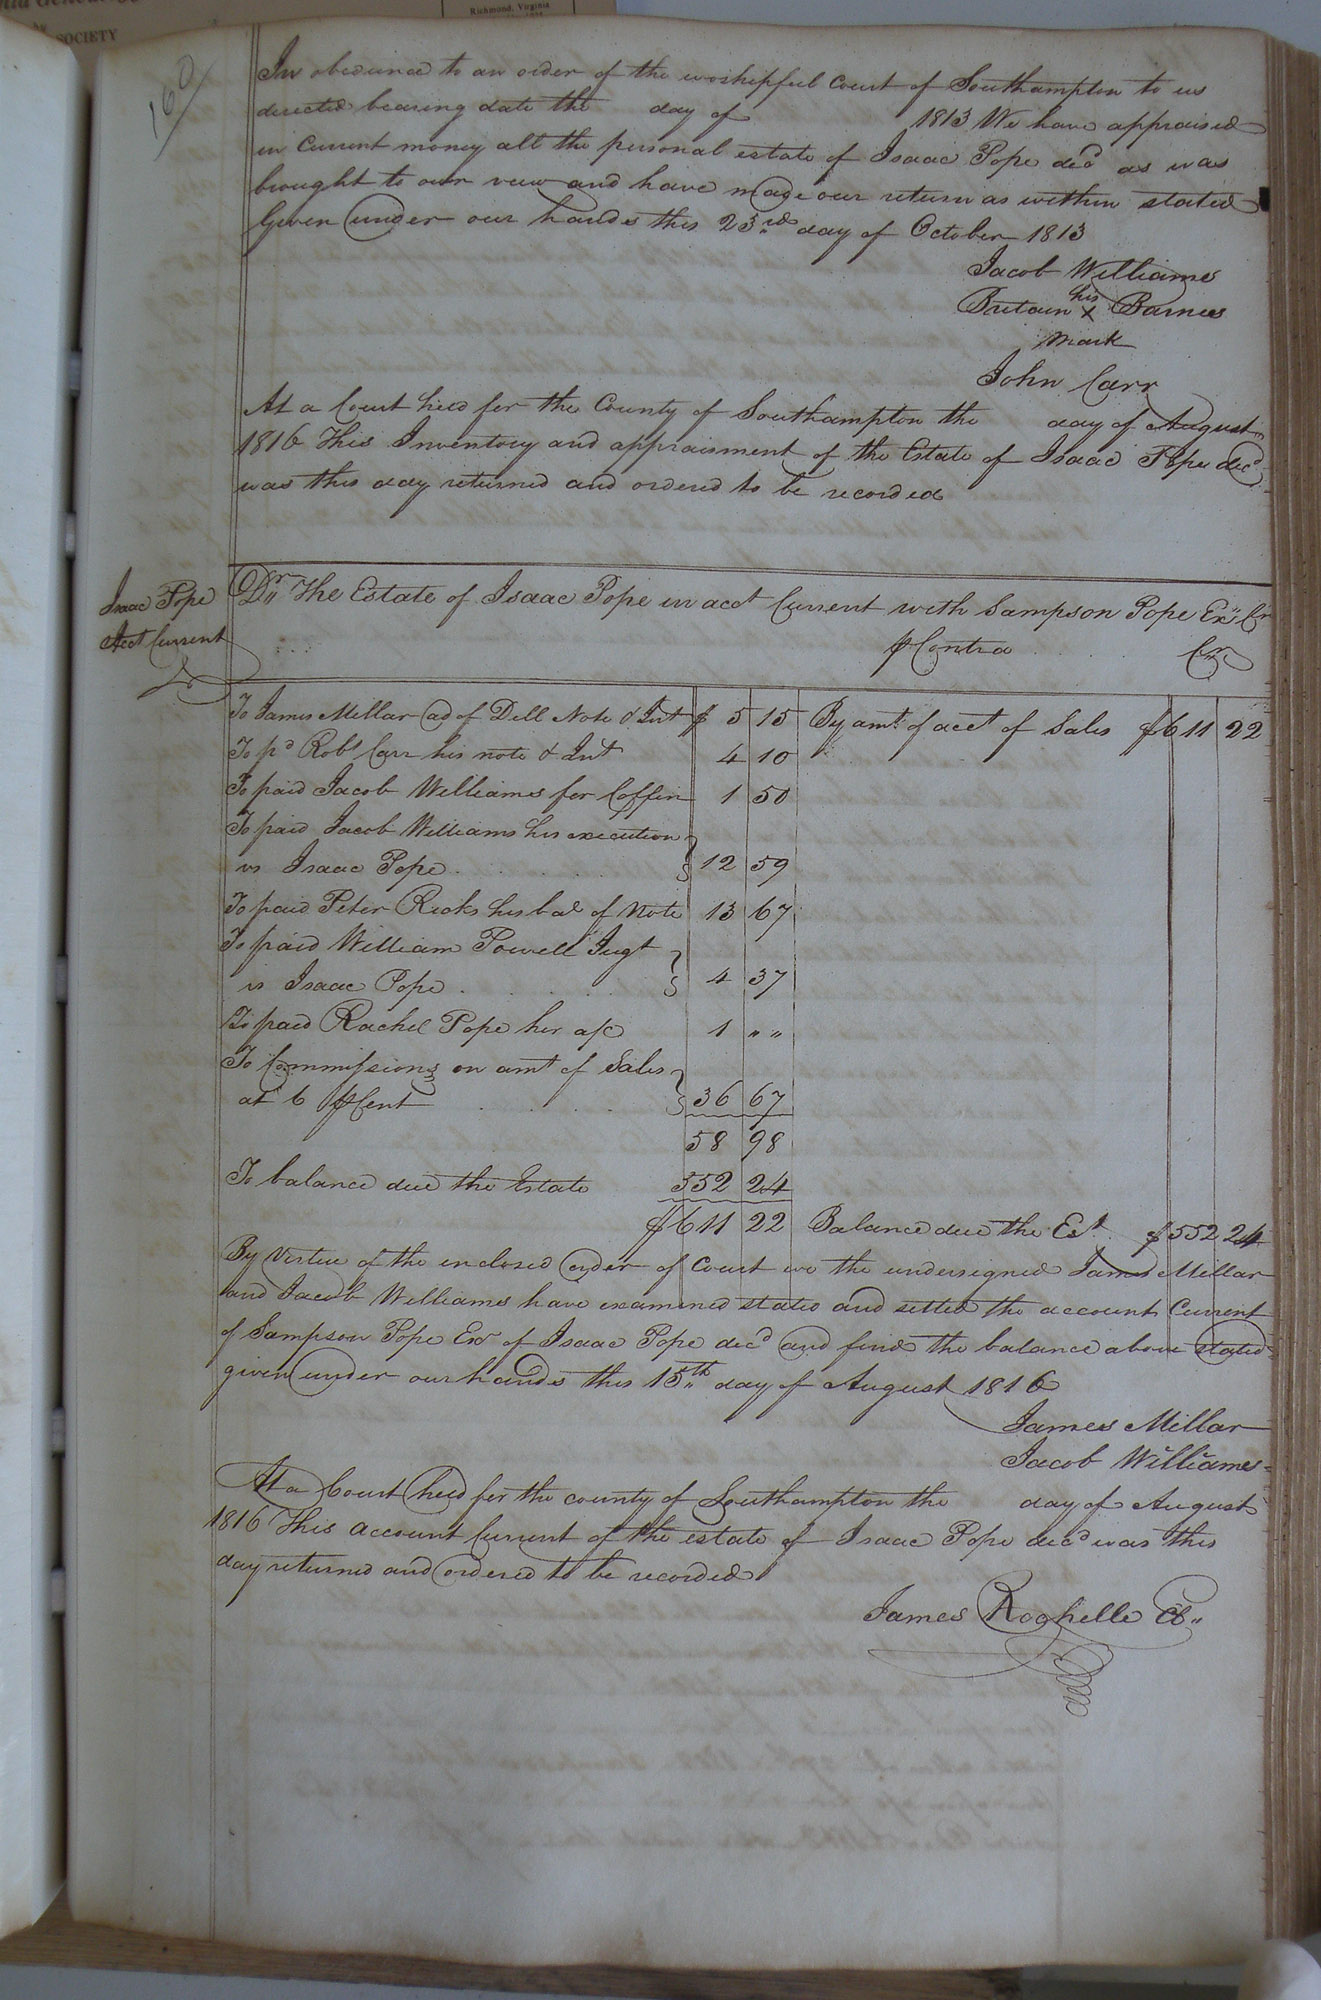 SOCIETY
Richmond, Virginia
160
In obedience to an order of the worshipful Court of Southampton to us
directed bearing date the day of 1813 We have appraised
in Current money all the personal estate of Isaac Pope decd as was
brought to our view and have made our return as within stated
Given under our hands this 23rd day of October 1813
Jacob Williams
his
Britain x Barnes
mark
John Carr
At a Court held for the County of Southampton the day of August
1816 This Inventory and appraisment of the Estate of Isaac Pope decd
was this day returned and ordered to be recorded
Isaac Pope
Acct Current
Dr The Estate of Isaac Pope in acct Current with Sampson Pope Exr Cr
⅌ Contra Cr
To James Millar ad of Dell Note & Int $ 5 15 By amt of acct of Sales $611 22
To pd Robt Carr his note & Int 4 10
To paid Jacob Williams for Coffin 1 50
To paid Jacob Williams his execution
vs Isaac Pope 12 59
To paid Peter Ricks his bal of Note 13 67
To paid William Powell Jugt
vs Isaac Pope 4 37
To paid Rachel Pope her a/c 1 " "
To Commissions on amt of Sales
at 6 ⅌ Cent 36 67
58 98
To balance due the Estate 552 24
$611 22 Balance due the Est $552 24
By Virtue of the enclosed order of Court we the undersigned James Millar
and Jacob Williams have examined stated and settled the account Current
of Sampson Pope Exr of Isaac Pope decd and find the balance above stated
given under our hands this 15th day of August 1816
James Millar
Jacob Williams
At a Court held for the county of Southampton the day of August
1816 This account Current of the estate of Isaac Pope decd was this
day returned and ordered to be recorded
James Rochelle Cl